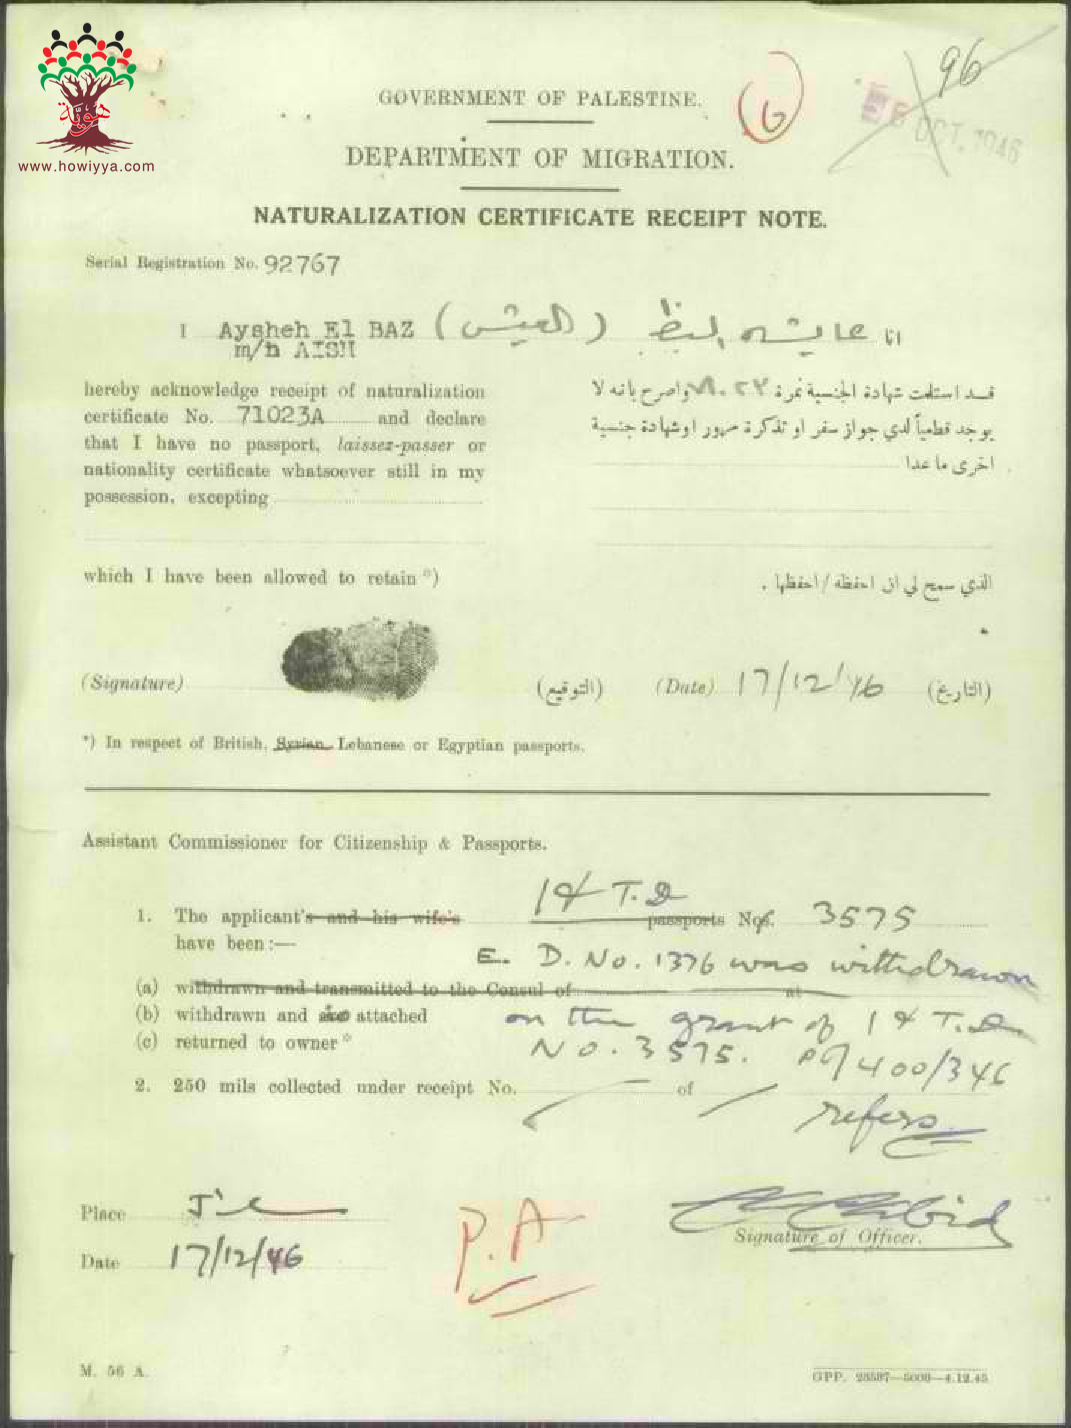 هوية
www.howiyya.com
96
6 OCT. 1946
6
GOVERNMENT OF PALESTINE.
DEPARTMENT OF MIGRATION.
NATURALIZATION CERTIFICATE RECEIPT NOTE.
Serial Registration No. 92767
I Aysheh El BAZ
m/n AISH
انا عايشه (العيش)
hereby acknowledge receipt of naturalization
certificate No. 71023A and declare
that I have no passport, laissez-passer or
nationality certificate whatsoever still in my
possession, excepting
قد استلمت شهادة الجنسية نمرة واصرح بانه لا
يوجد قطعياً لدي جواز سفر او تذكرة مرور او شهادة جنسية
اخرى ما عدا
which I have been allowed to retain *)
الذي سمح لي ان احفظه / احفظها .
(Signature) (التوقيع) (Date) 17/12/46 (التاريخ)
*) In respect of British, Syrian, Lebanese or Egyptian passports.
Assistant Commissioner for Citizenship & Passports.
1. The applicant's and his wife's passports Nos. 3575
T.D
have been:—
E. D. No. 1376 was withdrawn
(a) withdrawn and transmitted to the Consul of at
(b) withdrawn and attached
on the grant of T.D
(c) returned to owner *
No. 3575. 400/346
2. 250 mils collected under receipt No. of
refers
Place
Date 17/12/46
P.A
Signature of Officer.
M. 56 A.
GPP. 23587—5000—4.12.45